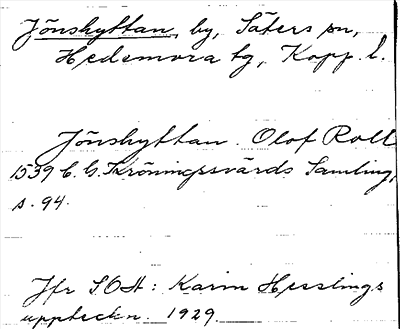 Jönshyttan, by, Säters sn,
Hedemora tg, Kopp. l.
Jönshyttan. Olof Roll
1539 C. G. Kröningssvärds Samling,
s. 94.
Jfr SOA: Karin Hesslings
uppteckn. 1929